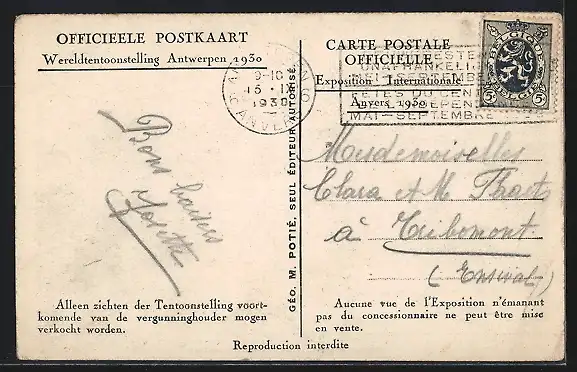 OFFICIEELE POSTKAART
Wereldtentoonstelling Antwerpen 1930
CARTE POSTALE
OFFICIELLE
Exposition Internationale
Anvers 1930
9-10
1930
D'ANVERS
ONAFHANKELIJ
MEI-SEPTEMBE
FÊTES DU CENT
MAI-SEPTEMBRE
BELGIQUE
BELGIË
5c 5c
Bons baisers
Josette
GÉO. M. POTIÉ, SEUL ÉDITEUR AUTORISÉ
Mesdemoiselles
Clara et M.
à Tribomont
(Ensival)
Alleen zichten der Tentoonstelling voort-
komende van de vergunninghouder mogen
verkocht worden.
Aucune vue de l'Exposition n'émanant
pas du concessionnaire ne peut être mise
en vente.
Reproduction interdite